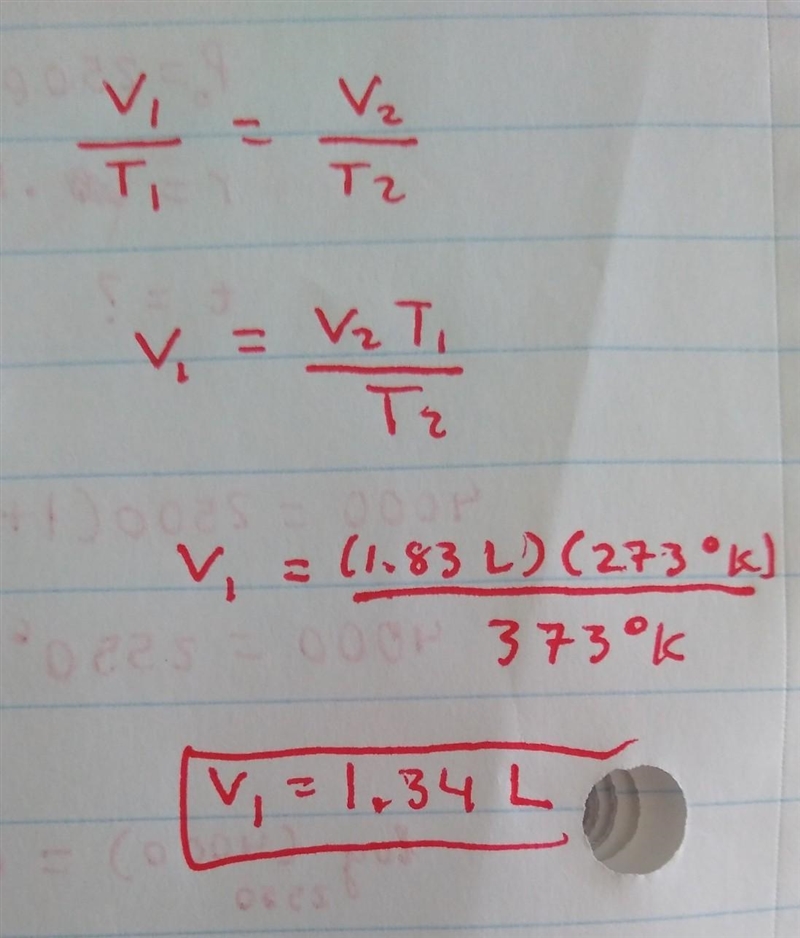 V₁/T₁ = V₂/T₂
V₁ = V₂ T₁/T₂
V₁ = (1.83 L)(273°K)/373°K
V₁ = 1.34 L